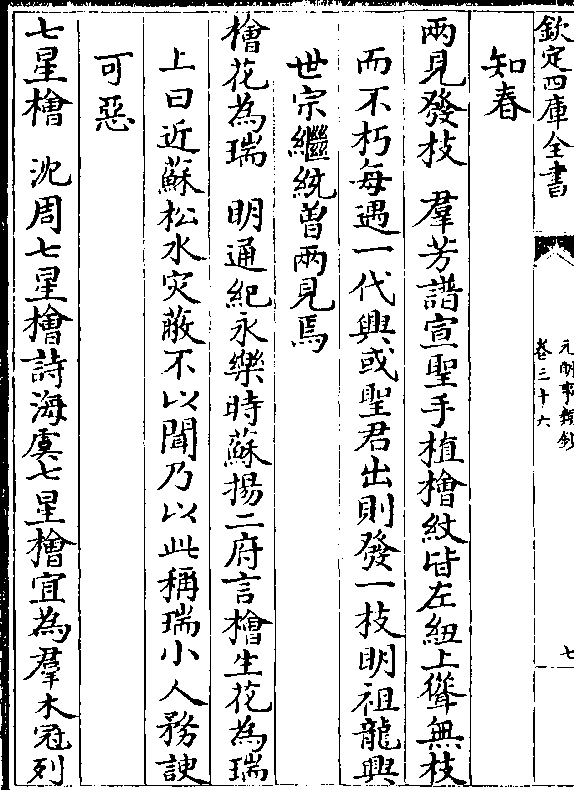 欽定四庫全書
元明事類鈔
卷三十六
七
知春
兩見發枝 羣芳譜宣聖手植檜紋皆左紐上聳無枝
而不朽每遇一代興或聖君出則發一枝明祖龍興
世宗繼統曽兩見焉
檜花為瑞 明通紀永樂時蘇揚二府言檜生花為瑞
上曰近蘇松水灾蔽不以聞乃以此稱瑞小人務諛
可惡
七星檜 沈周七星檜詩海虞七星檜宜為羣木冠列